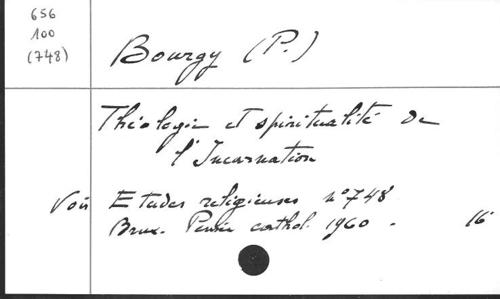 656
100
(748)
Bourgy (P.)
Théologie et spiritualité de
l'Incarnation
Voir Etudes religieuses n° 748
Brux. Pensée cathol. 1960. 16°